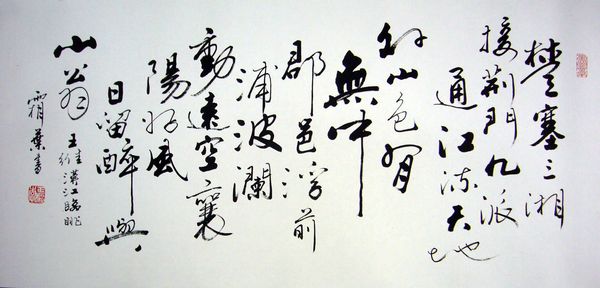 楚塞三湘
接荊門九派
通江流天地
外山色有
無中
郡邑浮前
浦波瀾
動遠空襄
陽好風
日留醉與
山翁
王維漢江臨眺
霜葉書